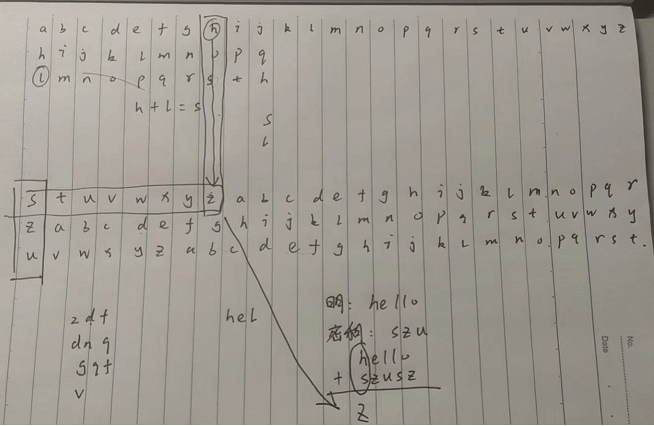 a b c d e f g h i j k l m n o p q r s t u v w x y z
h i j k l m n o p q
l m n o p q r s t h
h + l = s
s
l
s t u v w x y z a b c d e f g h i j k l m n o p q r
z a b c d e f g h i j k l m n o p q r s t u v w x y
u v w x y z a b c d e f g h i j k l m n o p q r s t.
z d f
d n q
g q f
v
hel
明: hello
密钥: szu
hello
+ szusz
z
No.
Date